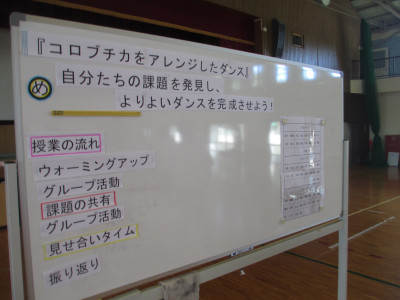 『コロブチカをアレンジしたダンス』
め
自分たちの課題を発見し、
よりよいダンスを完成させよう！
授業の流れ
ウォーミングアップ
グループ活動
課題の共有
グループ活動
見せ合いタイム
振り返り